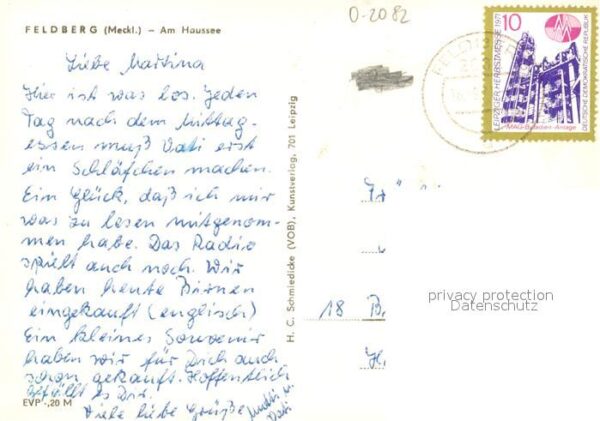 O-2082
FELDBERG (Meckl.) – Am Haussee
Liebe Martina
Hier ist was los. Jeden
Tag nach dem Mittag-
essen muß Vati erst
ein Schläfchen machen.
Ein Glück, daß ich mir
was zu lesen mitgenom-
men habe. Das Radio
spielt auch noch. Wir
haben heute Birnen
eingekauft (englisch)
Ein kleines Souvenir
haben wir für Dich auch
schon gekauft. Hoffentlich
gefällt es Dir.
Viele liebe Grüße
Mutti u.
Vati
EVP -,20 M
H. C. Schmiedicke (VOB), Kunstverlag, 701 Leipzig
10
LEIPZIGER HERBSTMESSE 1971
DEUTSCHE DEMOKRATISCHE REPUBLIK
18 B
privacy protection
Datenschutz